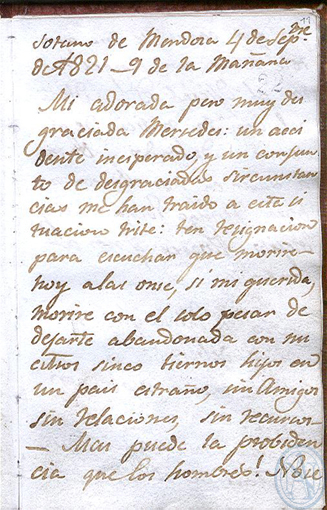 Sotano de Mendosa 4 de Sep.bre
de 1821_9 de la Mañana
Mi adorada pero muy des
graciada Mersedes: un acci
dente inesperado, y un conjun
to de desgraciadas sircunstan
cias me han traido a esta si
tuacion triste: ten resignacion
para escuchar que morire
hoy a las onse, si mi querida,
morire con el solo pesar de
dejarte abandonada con nu
estros sinco tiernos hijos en
un pais estraño, sin Amigos
sin relaciones, sin recursos
— Mas puede la probiden
cia que los hombres!